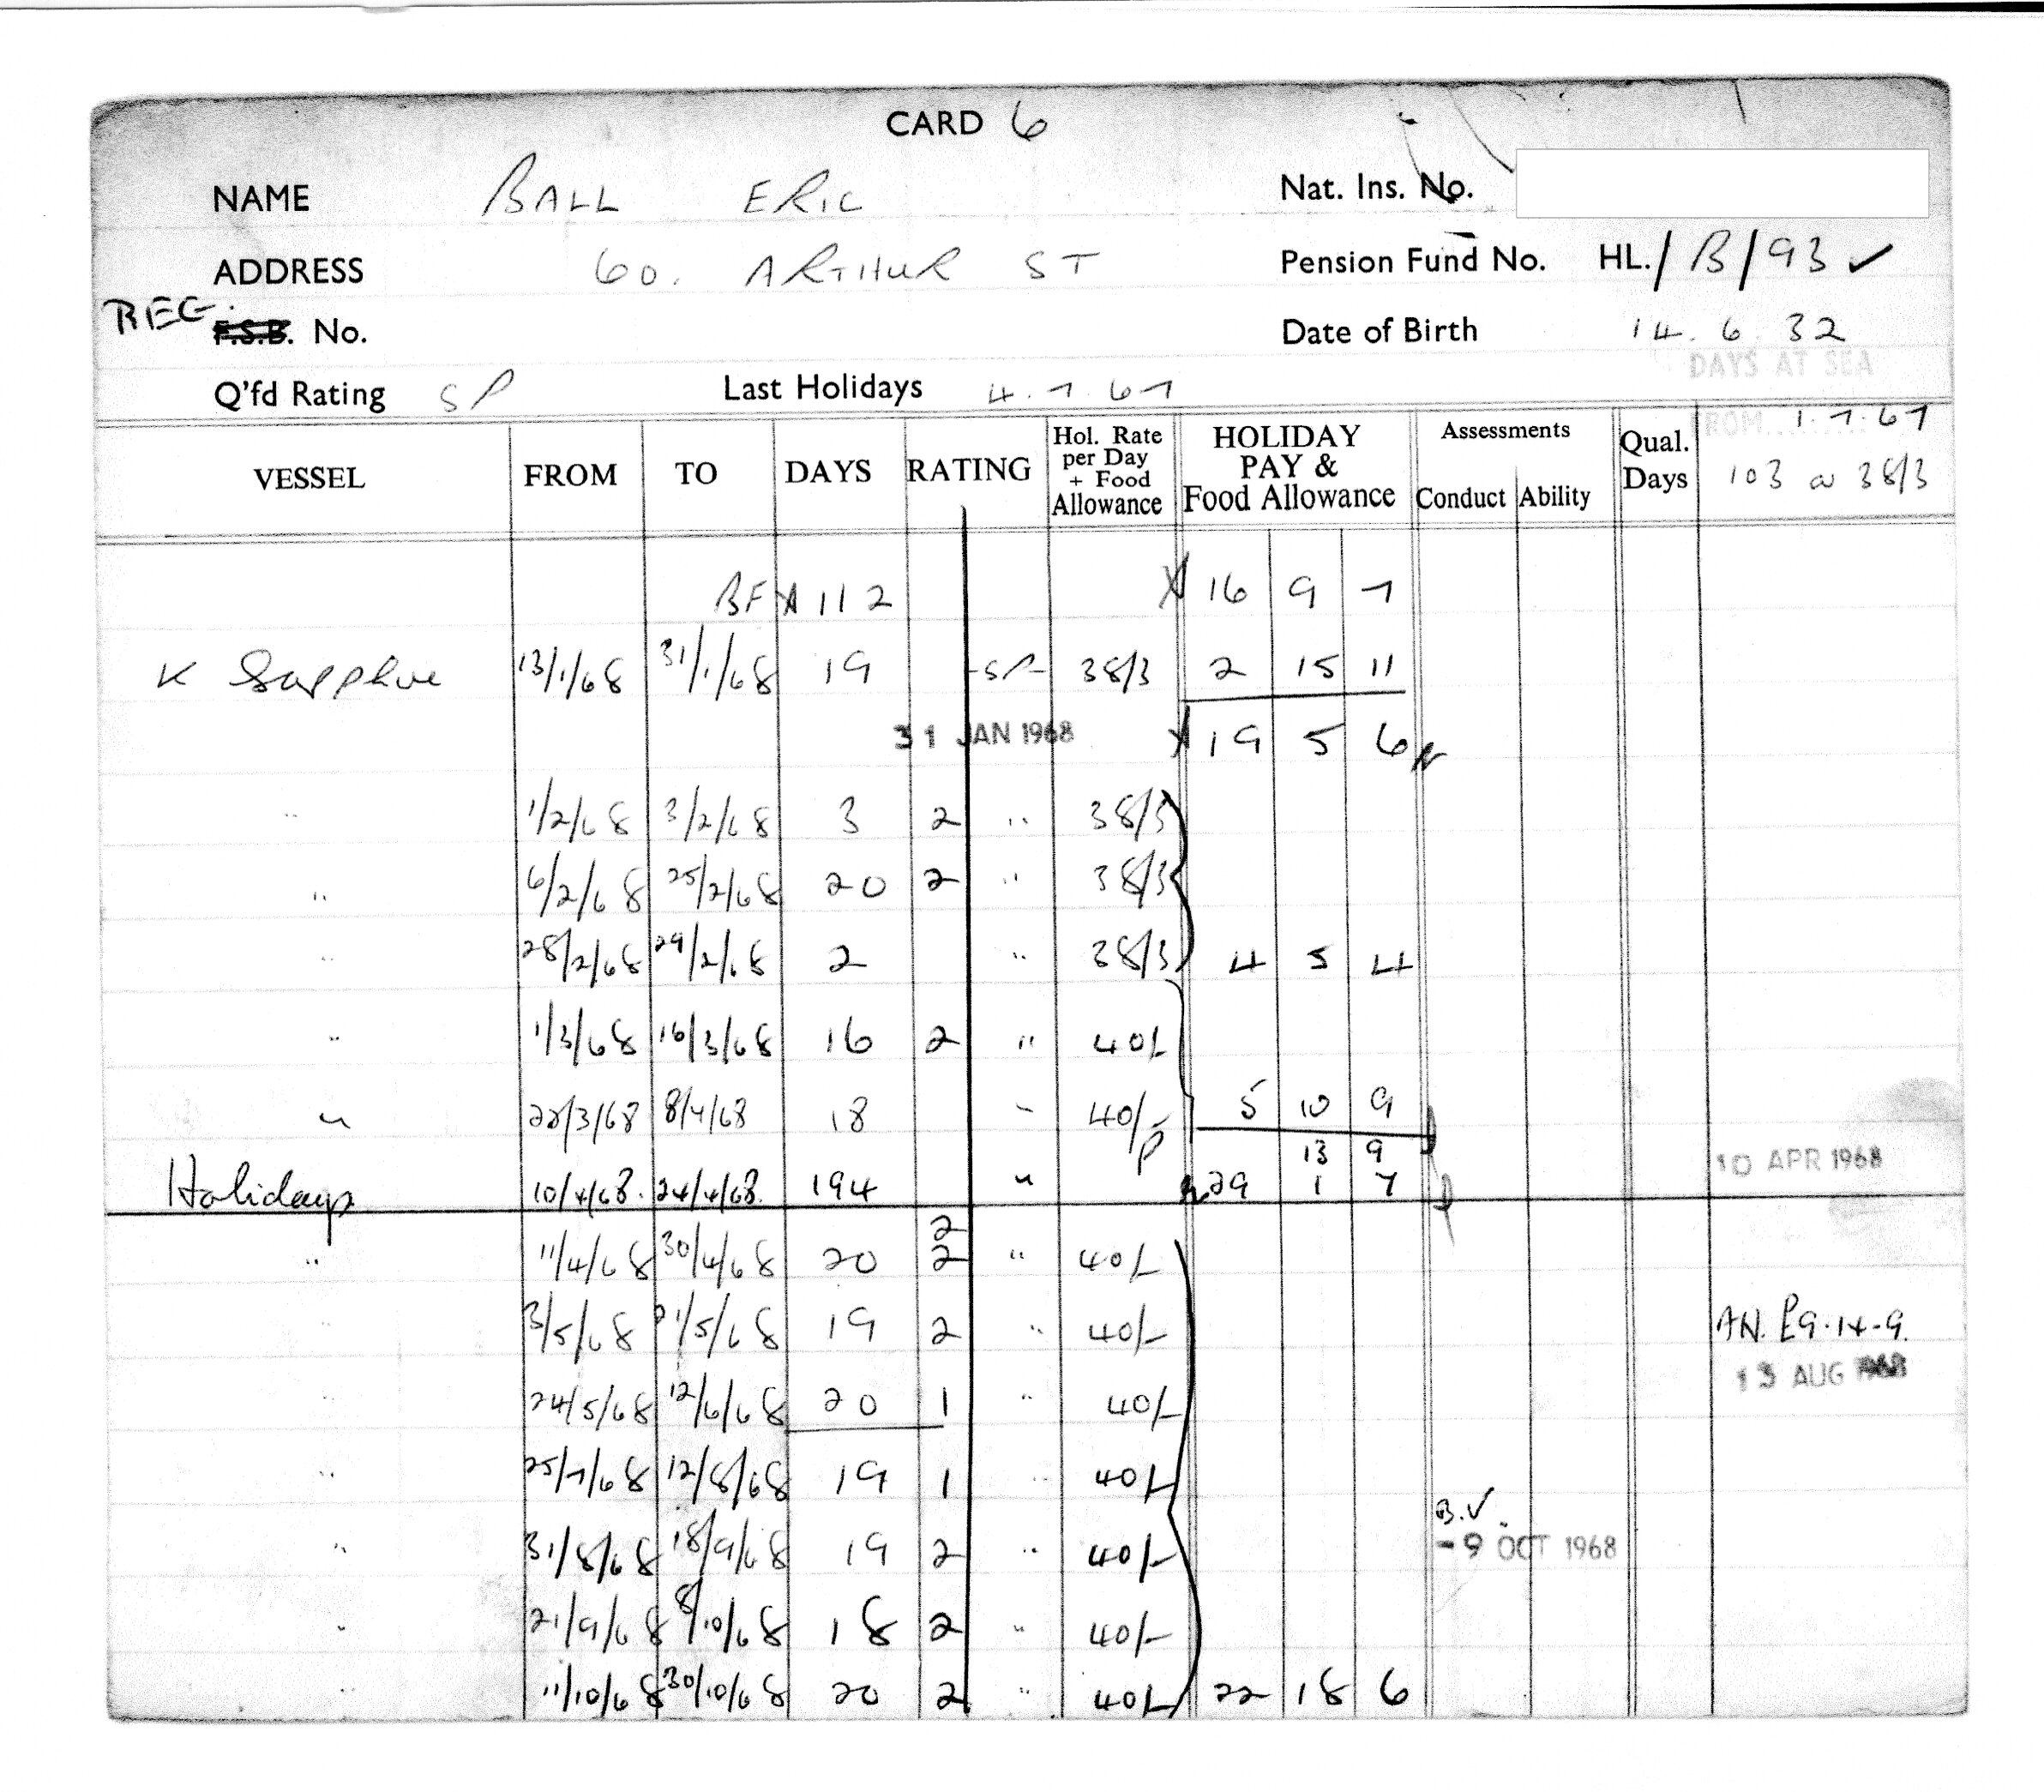 CARD 6
NAME BALL ERIC Nat. Ins. No.
ADDRESS 60. ARTHUR ST Pension Fund No. HL./B/93 ✓
REG. F.S.B. No. Date of Birth 14.6.32
DAYS AT SEA
Q'fd Rating SP Last Holidays 4.7.67
FROM 1.7.67
VESSEL FROM TO DAYS RATING Hol. Rate per Day + Food Allowance HOLIDAY PAY & Food Allowance Assessments Conduct Ability Qual. Days 103 @ 38/3
BF 112 16 9 7
K Sapphire 13/1/68 31/1/68 19 SP 38/3 2 15 11
31 JAN 1968 19 5 6
" 1/2/68 3/2/68 3 2 " 38/3
" 6/2/68 25/2/68 20 2 " 38/3
" 28/2/68 29/2/68 2 " 38/3 4 5 4
" 1/3/68 16/3/68 16 2 " 40/-
" 22/3/68 8/4/68 18 " 40/- 5 10 9
13 9 10 APR 1968
Holidays 10/4/68. 24/4/68. 194 " 29 1 7
2
" 11/4/68 30/4/68 20 2 " 40/-
" 3/5/68 21/5/68 19 2 " 40/- AN. £9-14-9.
13 AUG 1968
" 24/5/68 12/6/68 20 1 " 40/-
" 25/7/68 12/8/68 19 1 " 40/-
B.V.
" 31/8/68 18/9/68 19 2 " 40/- -9 OCT 1968
" 21/9/68 8/10/68 18 2 " 40/-
" 11/10/68 30/10/68 20 2 " 40/- 22 18 6